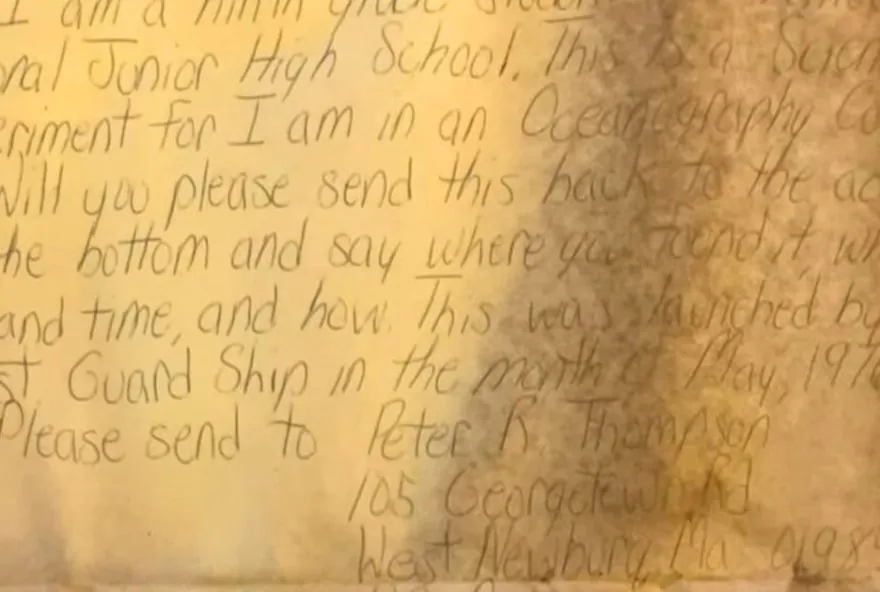 I am a ninth grade student
ral Junior High School. This is a Scien
eriment for I am in an Oceanography Co
Will you please send this back to the ad
he bottom and say where you found it, wh
and time, and how. This was launched by
st Guard Ship in the month of May, 197
Please send to Peter R. Thompson
105 Georgetown Rd
West Newbury, Ma 0198